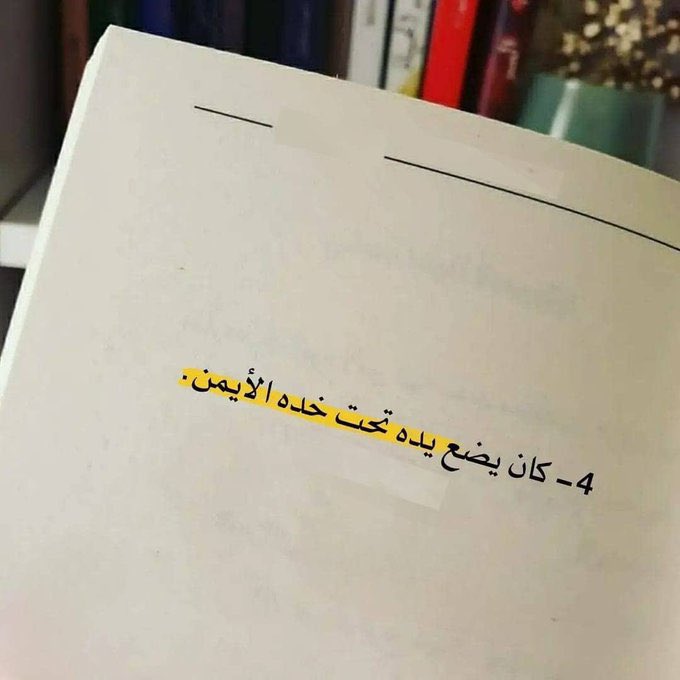 4- كان يضع يده تحت خده الأيمن.